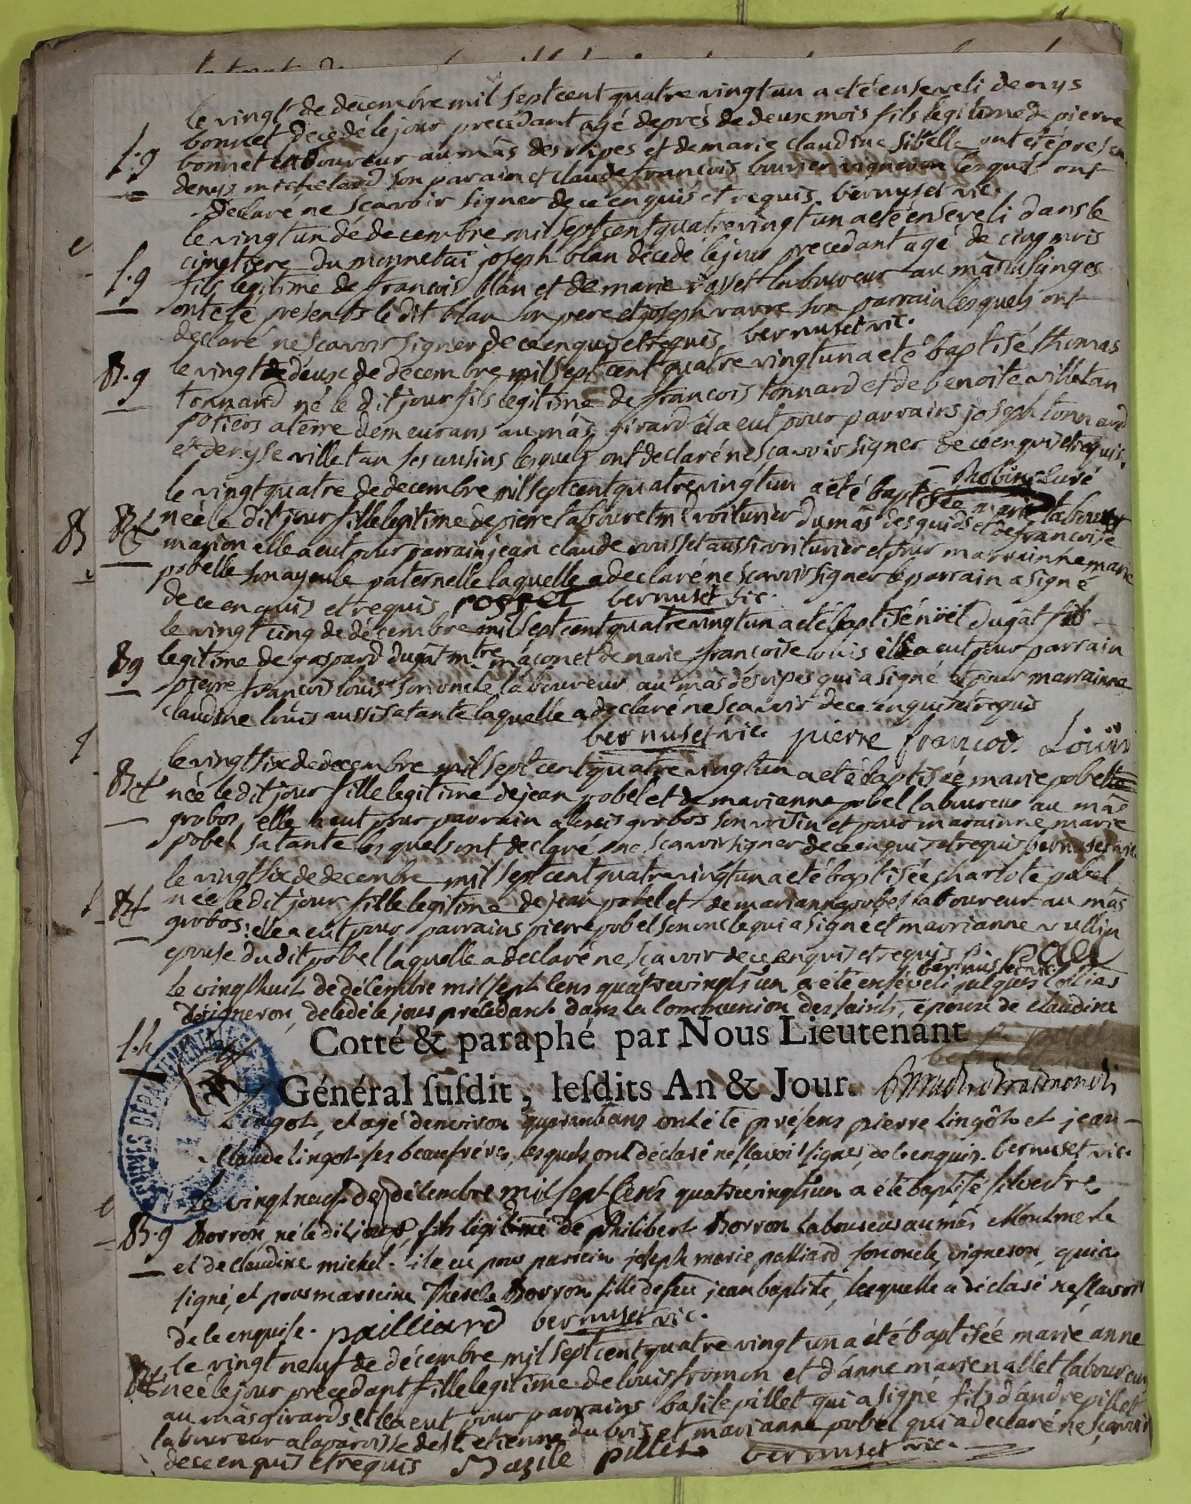 le vingt de decembre mil sept cent quatre vingt un a été enseveli denys
bonnet decedé le jour precedant agé de près de deux mois fils legitime de pierre
S.g bonnet laboureur au mas des ripes et de marie claudine sibelle ont été presen
denys michelard son parain et claude francois bouvier vigneron lesquels ont
declaré ne scavoir signer de ce enquis et requis bernuset vic.
le vingt un de decembre mil sept cent quatre vingt un a été enseveli dans le
cimetiere du monnetai joseph blan decedé le jour precedant agé de cinq mois
S.g fils legitime de francois blan et de marie laboureur au mas
ont été présents le dit blan son pere et joseph son parrain lesquels ont
declaré ne scavoir signer de ce enquis et requis bernuset vic.
B.g le vingt deux de decembre mil sept cent quatre vingt un a été baptisé thomas
tonnard né le dit jour fils legitime de francois tonnard et de benoite villetan
posiers a terre demeurans au mas girard il a eut pour parrains joseph tonnard
et denyse villetan ses cousins lesquels ont declaré ne scavoir signer de ce enquis et requis.
curé
le vingt quatre de decembre mil sept cent quatre vingt un a été baptisée marie labouret
B née le dit jour fille legitime de pierre labouret md voiturier du mas des guides et de francoise
marion elle a eut pour parrain jean claude rousset aussi voiturier et pour marrainne marie
pobelle son ayeule paternelle laquelle a declaré ne scavoir signer le parrain a signé
de ce enquis et requis rosset bernuset vic.
le vingt cinq de decembre mil sept cent quatre vingt un a été baptisé noël dugât fils
B.g legitime de gaspard dugât mtre maçon et de marie francoise louis il a eut pour parrain
pierre francois louis son oncle laboureur au mas des ripes qui a signé et pour marrainne
claudine louis aussi sa tante laquelle a declaré ne scavoir de ce enquis et requis
bernuset vic. pierre francois Louis
le vingt six de decembre mil sept cent quatre vingt un a été baptisée marie pobel
Bf née le dit jour fille legitime de jean pobel et de marianne pobel laboureur au mas
grobos, elle a eut pour parrain alexis grobos son voisin et pour marainne marie
pobel sa tante lesquels ont declaré ne scavoir signer de ce enquis et requis bernuset vic
le vingt six de decembre mil sept cent quatre vingt un a été baptisée charlote pobel
Bf née le dit jour fille legitime de jean pobel et de marianne pobel laboureur au mas
grobos: elle a eut pour parrains pierre pobel son oncle qui a signé et marianne vullin
epouse du dit pobel laquelle a declaré ne scavoir de ce enquis et requis
bernuset vic
le vingt huit de decembre mil sept cens quatre vingts un a été enseveli
vigneron, decédé le jour précédant dans la communion des saints, époux de claudine
S.h Cotté & paraphé par Nous Lieutenant
Général susdit, lesdits An & Jour.
Lingot, et agé denviron quarante ans ont été présens pierre Lingot et jean
claude Lingot ses beaufréres, lesquels ont déclaré ne sçavoir signer, de ce enquis. bernuset vic.
Le vingt neuf de décembre mil sept Cens quatre vingts un a été baptisé silvestre
B.g Borron, né le dit jour, fils légitime de Philibert Borron laboureur au mas
et de claudine michel. il a eu pour parrein joseph marie palliard, son oncle, vigneron, qui a
signé, et pour marreine Therese Borron fille de feu jean baptiste, laquelle a déclaré ne sçavoir
de ce enquise. pailliard bernuset vic.
le vingt neuf de décembre mil sept cent quatre vingt un a été baptisée marie anne
Bf née le jour precedant fille legitime de louis fromon et d'anne marie nallet laboureur
au mas girard et elle a eut pour parrains basile pillet qui a signé fils d'andre pillet
laboureur a la paroisse de st etienne du bois et marianne pobel qui a declaré ne scavoir
de ce enquis et requis Bazile pillet bernuset vic.